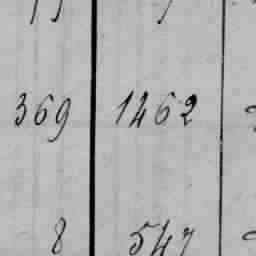 369 1462
8 547